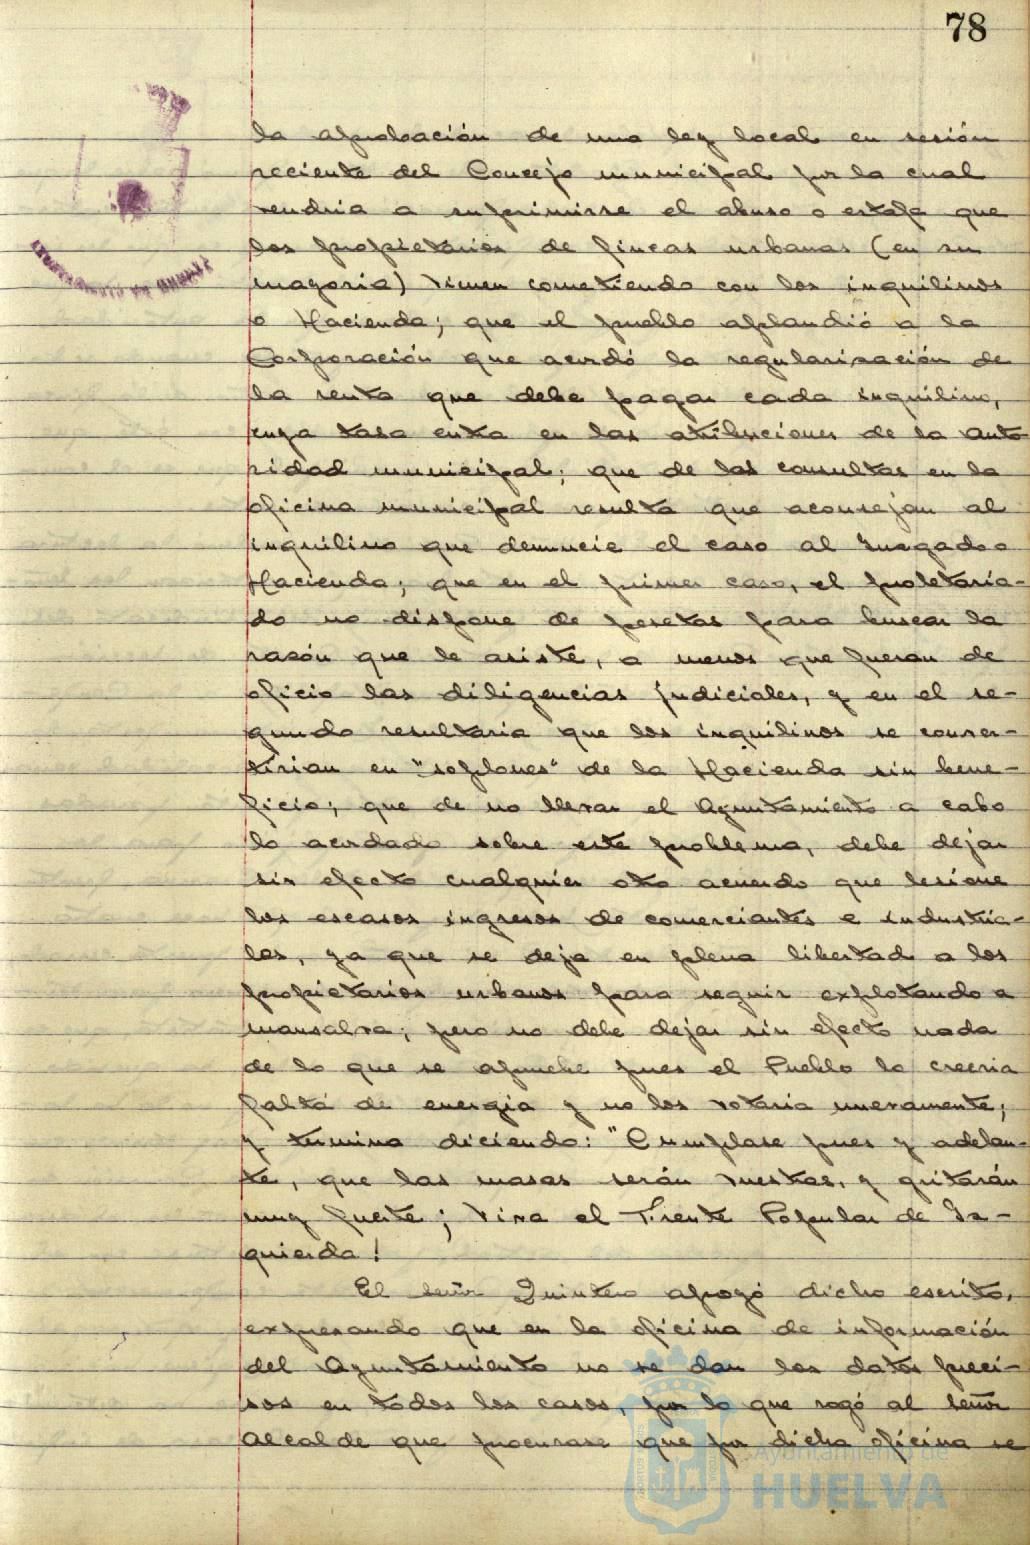 78
la aprobación de una ley local en sesión
reciente del Concejo municipal por la cual
vendria a suprimirse el abuso o estafa que
los propietarios de fincas urbanas (en su
mayoria) vienen cometiendo con los inquilinos
o Hacienda; que el pueblo aplaudió a la
Corporación que acordó la regularización de
la renta que debe pagar cada inquilino,
cuya tasa entra en las atribuciones de la auto
ridad municipal; que de las consultas en la
oficina municipal resulta que aconsejan al
inquilino que denuncie el caso al Juzgado o
Hacienda; que en el primer caso, el proletaria-
do no dispone de pesetas para buscar la
razón que le asiste, a menos que fueran de
oficio las diligencias judiciales, y en el se-
gundo resultaria que los inquilinos se conver-
tirian en "soplones" de la Hacienda sin bene-
ficio; que de no llevar el Ayuntamiento a cabo
lo acordado sobre este problema, debe dejar
sin efecto cualquier otro acuerdo que lesione
los escasos ingresos de comerciantes e industria-
les, ya que se deja en plena libertad a los
propietarios urbanos para seguir explotando a
mansalva; pero no debe dejar sin efecto nada
de lo que se apruebe pues el Pueblo lo creeria
falta de energia y no los votaria nuevamente;
y termina diciendo: "Cumplase pues y adelan-
te, que las masas serán vuestras, y gritarán
muy fuerte; Viva el Frente Popular de Iz-
quierda!
El señor Quintero apoyó dicho escrito,
expresando que en la oficina de información
del Ayuntamiento no se dan los datos preci-
sos en todos los casos, por lo que rogó al señor
Alcalde que procurase que por dicha oficina se
AYUNTAMIENTO DE HUELVA
Ayuntamiento de
HUELVA